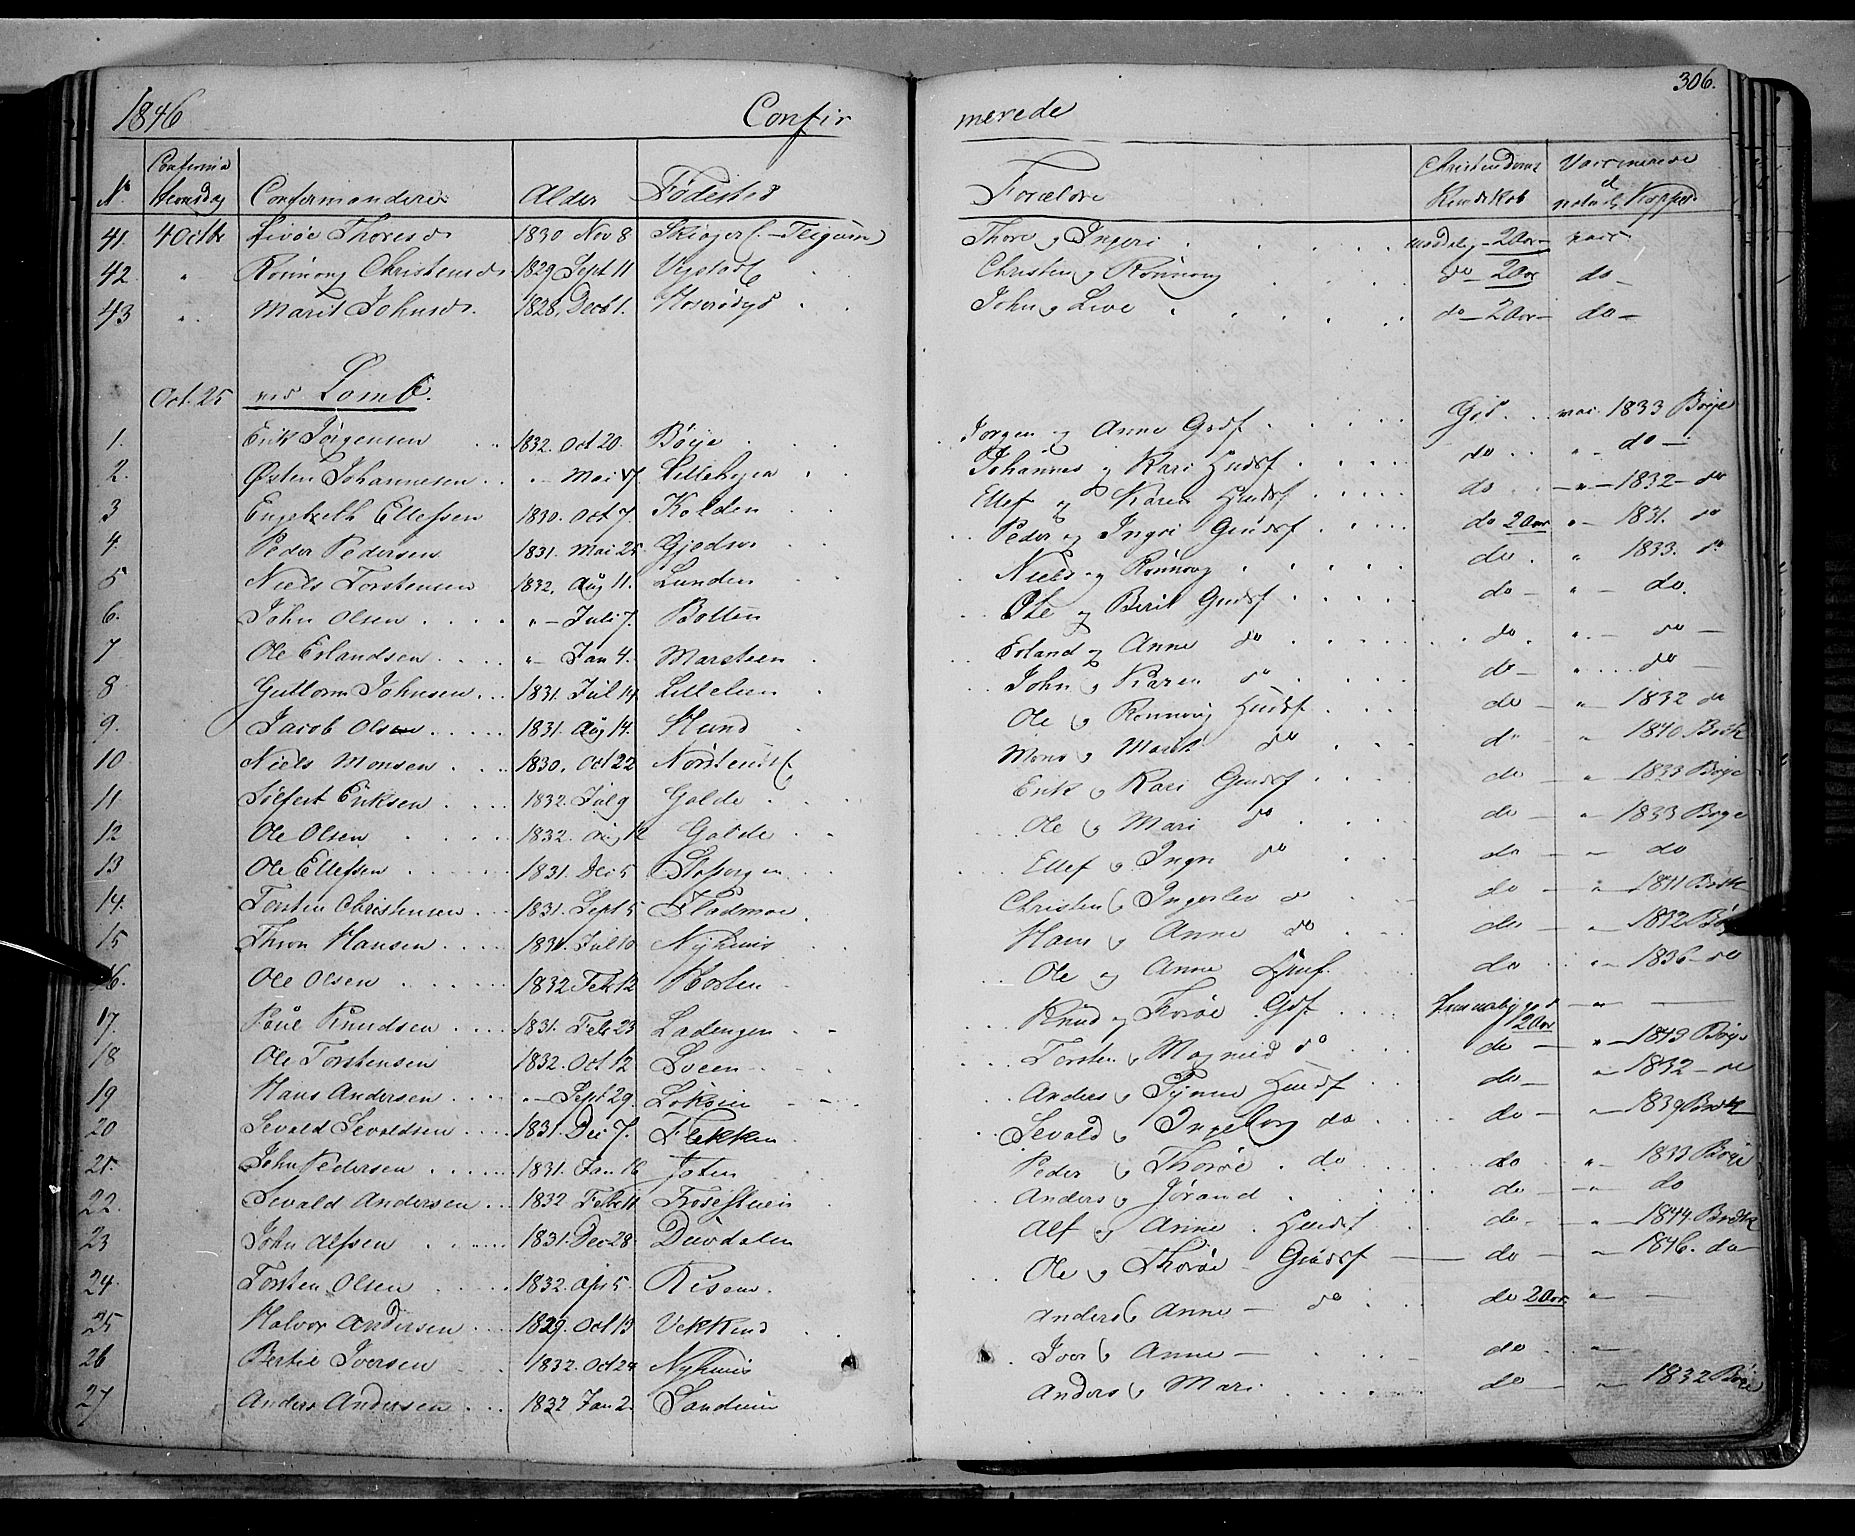 306.
1846 Confir merede
No Confirma tionsdag Confirmanderne Alder Födested Forældre Christendoms Kundskab Vaccinerede el naturl. Kopper
41. 4 Octbr Thoresd. 1830 Nov 8 Thore og Ingeri maadelig 2 Aar vacc
42. " Rönnoug Christensd. 1829 Sept 11 Christen og Rönnoug do 2 Aar do
43 " Marit Johnsd. 1828. Decb 1. John og Live do 2 Aar do
Oct. 25 ved Lomb.
1. Erik Jörgensen 1832. Oct 20. Böye Jörgen og Anne Gdsf God vac. 1833 Böye
2. Østen Johannesen " Mai Johannes og Kari Huusf do " do
3 Engebreth Ellefsen 1830. Oct 7. Kolden Ellef og Karen Huusf do " 1832 do
4. Peder Pedersen 1831. Mai 25 Peder og Ingri Gaardsf do 2 Aar " 1831. do
5 Niels Torstensen 1832. Aug 11. Lunden Niels og Rönnoug do " 1833. do
6. John Olsen " Juli 7. Botten Ole og Berit Gaardsf do " do.
7 Ole Erlandsen " Jan 4. Marstein Erland og Anne do do " do
8 Guttorm Johnsen 1831. Jul 14 Lillelien John og Karen do do " do
9. Jacob Olsen 1831. Aug 14. Hund Ole og Rönnoug Huusf do " 1832 do
10 Niels Monsen 1830. Oct 22 Mons og Marit do do " 1840. Brek
11 Sifert Eriksen 1832. Jul 9 Galde Erik og Kari Gaardsf do " 1833 Böye
12 Ole Olsen 1832. Aug 12 Galde Ole og Mari do do " 1833 Böye
13 Ole Ellefsen 1831. Dec 5 Ellef og Ingri do do do
14. Torsten Christensen 1831. Sept 5 Fladmoe Christen og Ingerlev do do " 1841 Brek
15 Thron Hansen 1831. Jul 10 Nyhuus Hans og Anne do do " 1832 Böy
16. Ole Olsen 1832 Feb 12 Ole og Anne Huusf. do " 1836 do
17. Poul Knudsen 1831. Feb 23 Ladengen Knud og Gdsf 2 Aar "
18 Ole Torstensen 1832. Oct 12 Sveen Torsten og Magnild do do " 1843 Böye
19 Hans Andersen " Sept 29. Anders og Huusf do " 1832 do
20 Sevald Sevaldsen 1831. Dec 7. Flekken Sevald og Ingeborg do do " 1839 Brek
21. John Pedersen 1831. Jan 16 Peder og Thoröe do do " 1833 Böye
22. Sevald Andersen 1832 Feb 11 Anders og Jörand do " do
23 John Alfsen 1831. Dec 28. Duvdalen Alf og Anne Huusf do " 1844. Brek
24. Torsten Olsen 1832. Apr 5 Risem Ole og Thoröe Gaardsf do " 1846. do
25 Halvor Andersen 1829. Oct 13 Anders og Anne do do 2 Aar "
26 Bertil Iversen 1832. Oct 24 Nyhuus Iver og Anne do "
27 Anders Andersen 1832 Jan 2. Sandviin Anders og Mari do " 1832 Böye